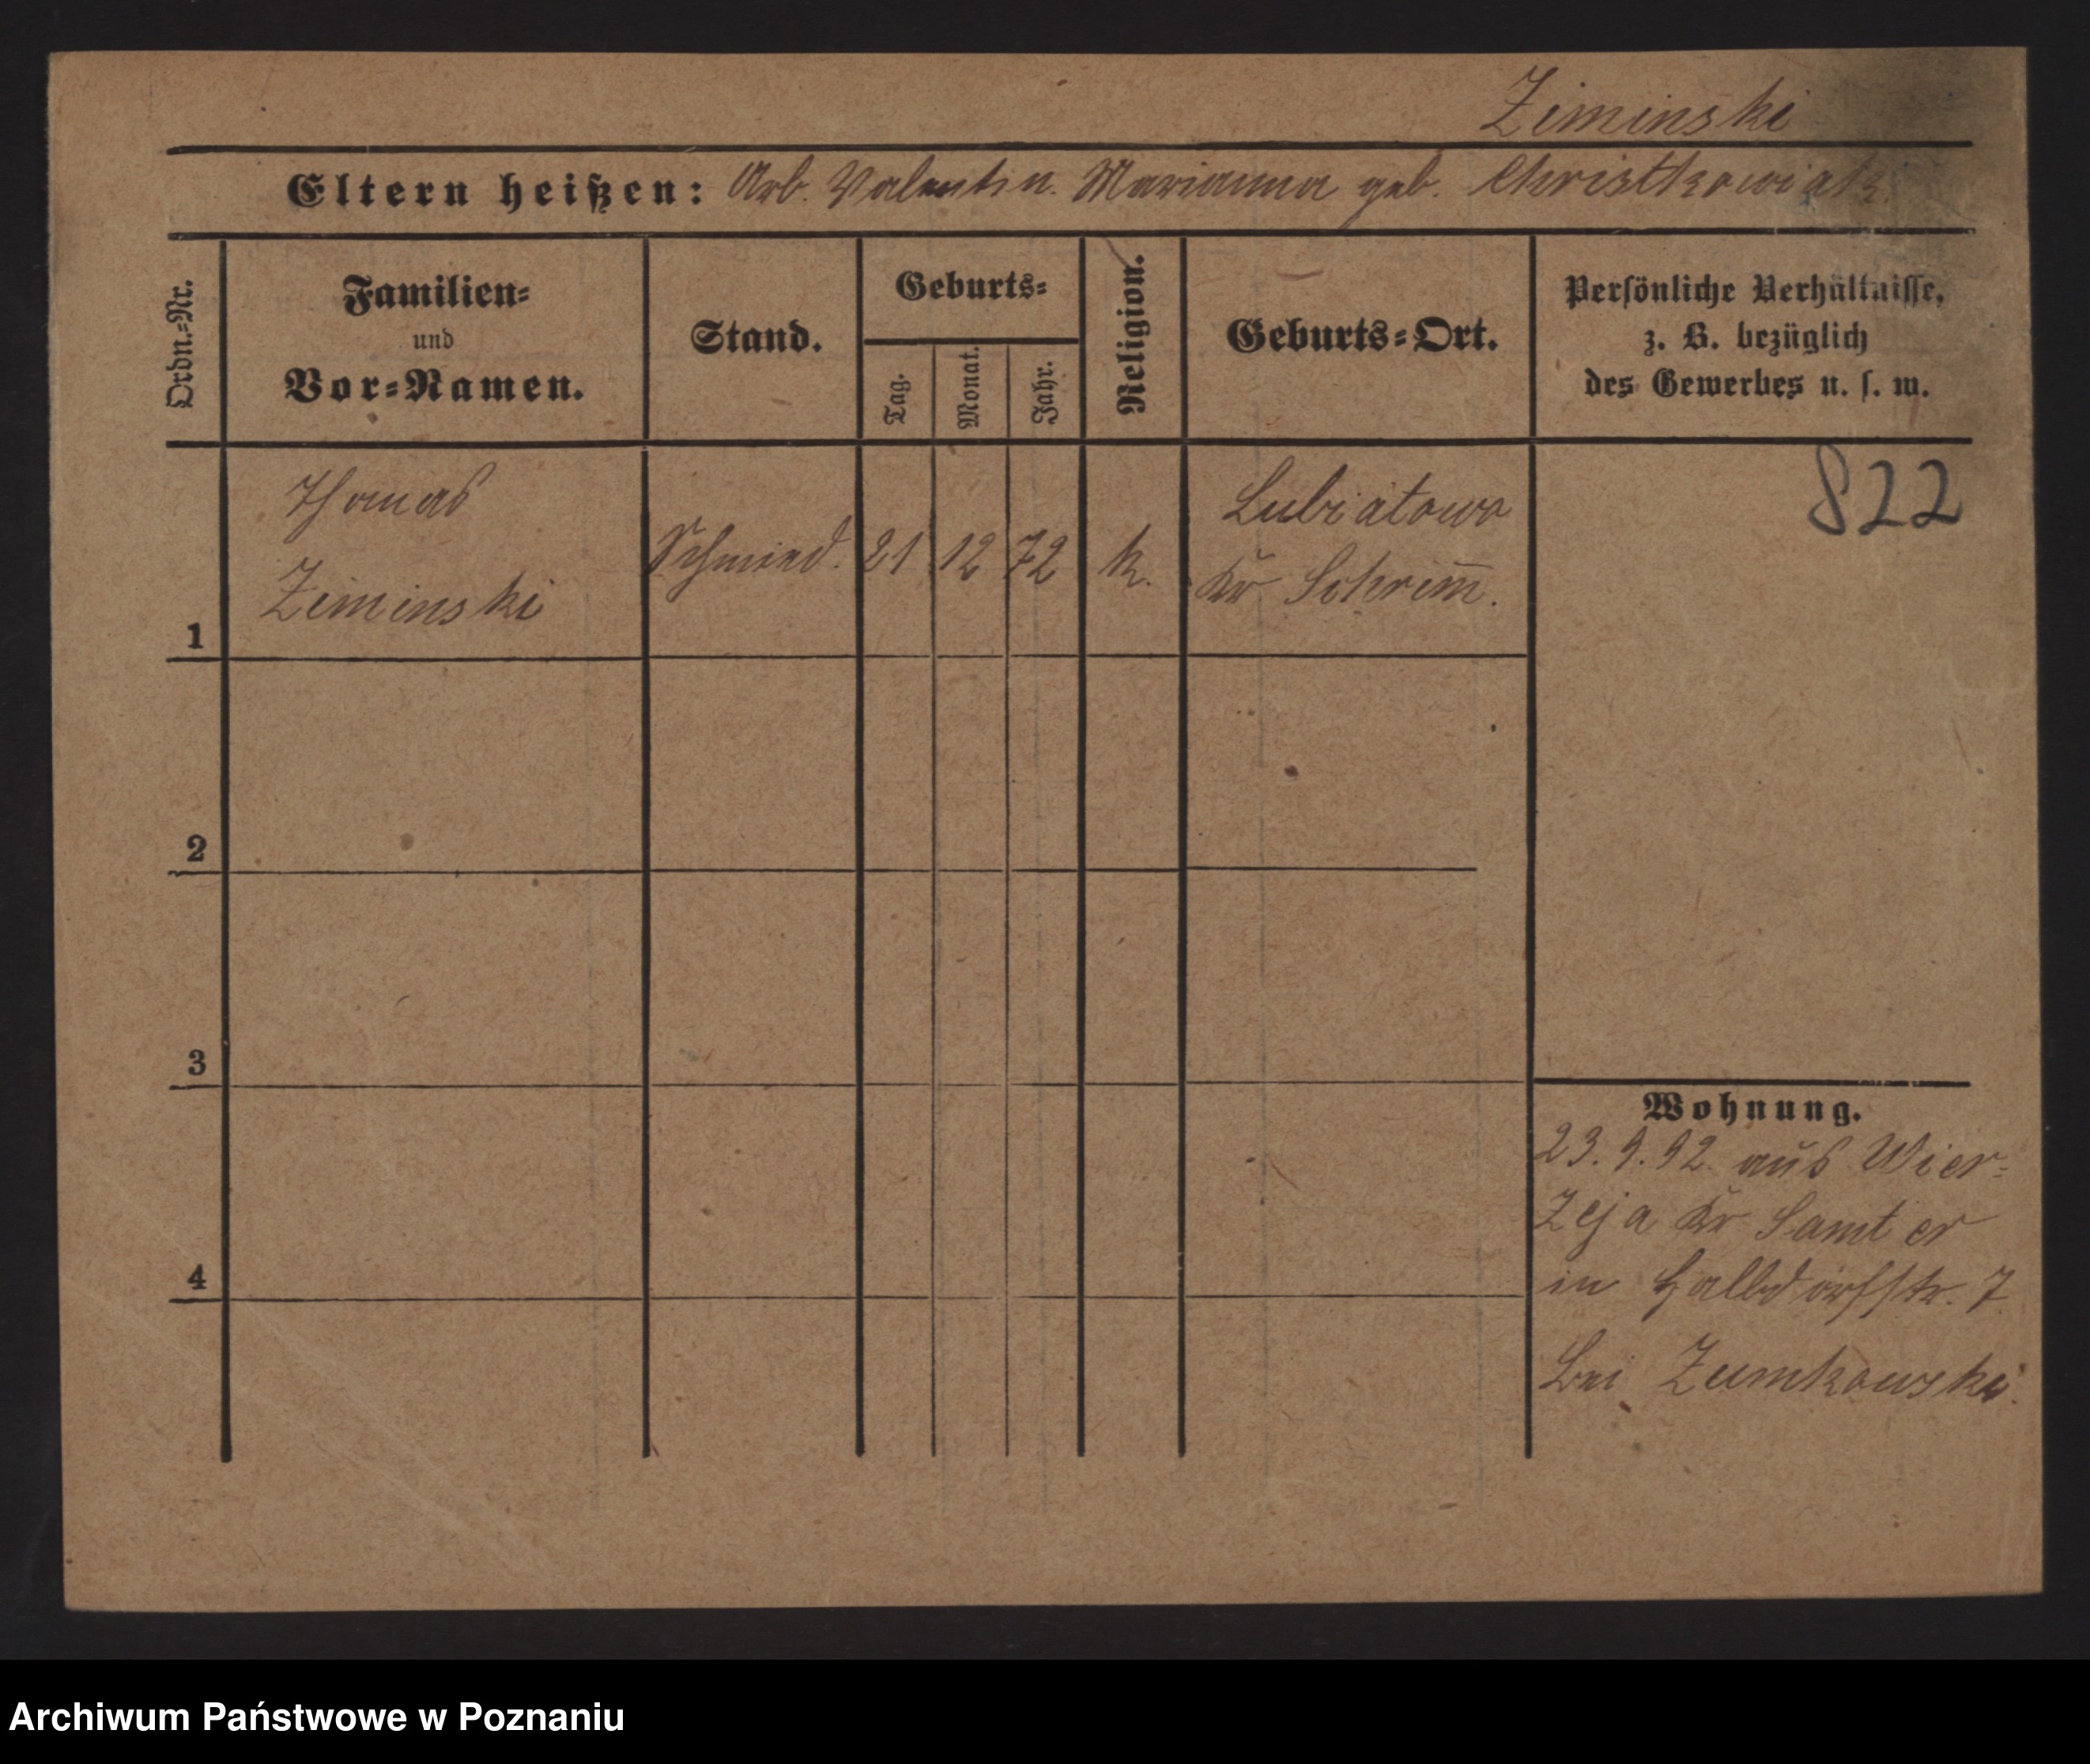 Ziminski
Eltern heißen: Arb. Valentin. Marianna geb. Christkowiak.
Ordn.=Nr.
Familien=
und
Vor=Namen.
Stand.
Geburts=
Tag.
Monat.
Jahr.
Religion.
Geburts=Ort.
Persönliche Verhältnisse,
z. B. bezüglich
des Gewerbes u. s. w.
822
1
Thomas
Ziminski
Schmied. 21 12 72 k.
Lubiatowo
Kr Schrim̅.
2
3
4
Wohnung.
23.9.92. aus Wier-
zeja Kr Samter
in Halbdorfstr. 7.
bei Zumkowski.
Archiwum Państwowe w Poznaniu